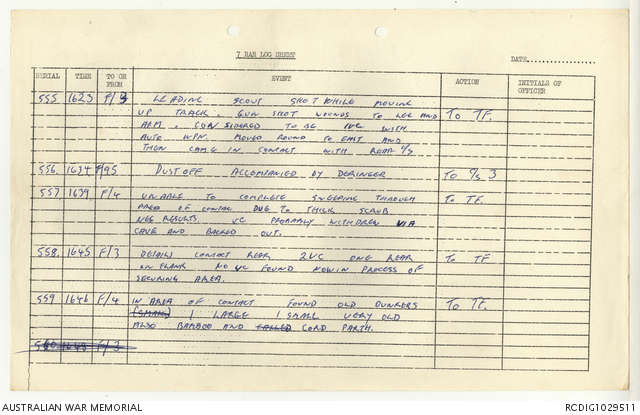 7 RAR LOG SHEET
DATE
SERIAL TIME TO OR FROM EVENT ACTION INITIALS OF OFFICER
555 1623 F/ LEADING SCOUT SHOT WHILE MOVING
UP TRACK GUN SHOT WOUNDS TO LEG AND TO TF.
ARM. CONSIDERED TO BE 1VC WITH
AUTO WPN. MOVED ROUND TO EAST AND
THEN CAME IN CONTACT WITH REAR
556 1634 F/95 DUSTOFF ACCOMPANIED BY DERINGER TO 3
557 1639 F/4 UNABLE TO COMPLETE SWEEPING THROUGH TO TF.
AREA OF CONTAC DUE TO THICK SCRUB
NEG RESULTS. VC PROBABLY WITHDREW VIA
CAVE AND BACKED OUT.
558 1645 F/3 DETAILS CONTACT REAR 2VC ONE REAR TO TF
ON FLANK NO VC FOUND NOW IN PROCESS OF
SECURING AREA.
559 1646 F/4 IN AREA OF CONTACT FOUND OLD BUNKERS TO TF.
(SMALL) 1 LARGE 1 SMALL VERY OLD
ALSO BAMBOO AND CORD PARTH.
560 1648 F/3
AUSTRALIAN WAR MEMORIAL RCDIG1029511